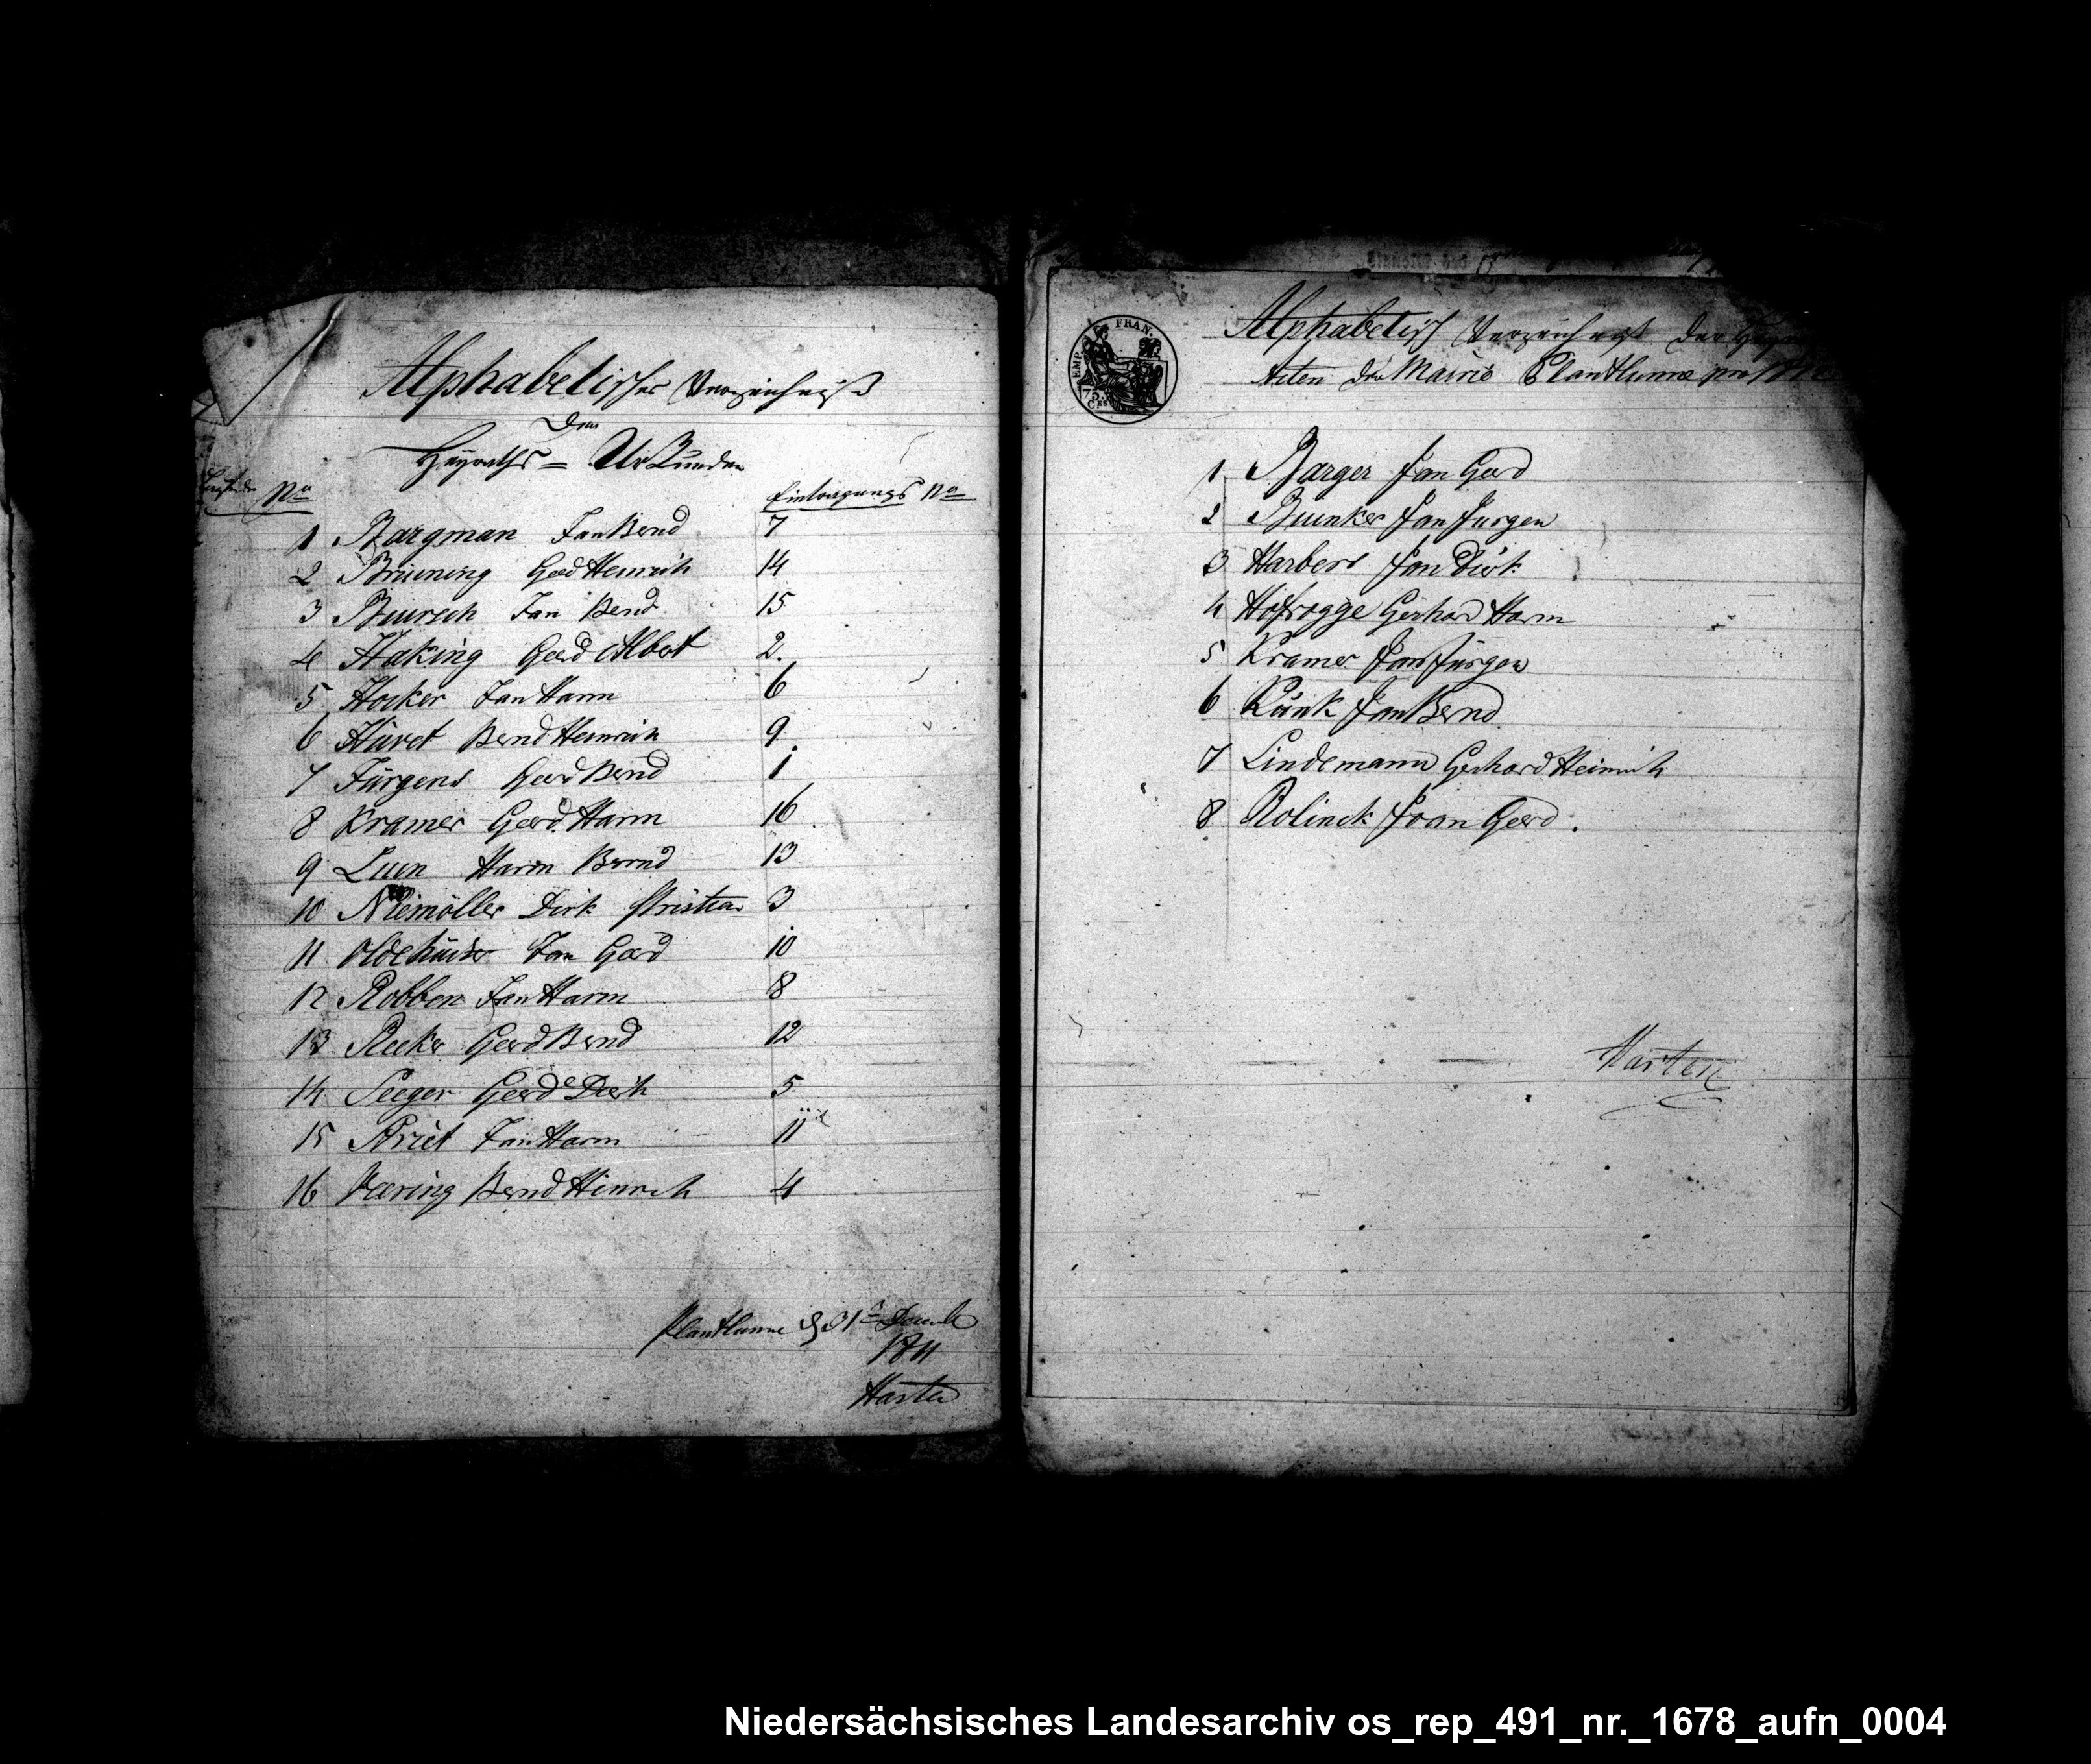 Alphabetisches Verzeichniß
der
Heyraths = Urkunden
No Eintragungs No
1 Bargman Jan Bernd 7
2 Bruening Gerd Henrich 14
3 Buursch Jan Bernd 15
4 Haking Gerd Albert 2.
5 Hocker Jan Harm 6
6 Hüvet Bernd Henrich 9
7 Jürgens Gerd Bernd 1
8 Kramer Gerd Harm 16
9 Luen Harm Bernd 13
10 Niemöller Dirk Christian 3
11 Jan Gerd 10
12 Robben Jan Harm 8
13 Gerd Bernd 12
14 Seeger Gerd 5
15 Jan Harm 11
16 Bernd Hinrich 4
Plantlunne d 31 Decemb
1811
Harten
EMP. FRAN.
75.
Alphabetisch Verzeichniß der
Acten der Mairie Plantlunne pro
1 Barger Jan Gerd
2 Buunker Jan Jurgen
3 Harbers Jan Dirk
4 Hofrogge Gerhard Harm
5 Kramer Jan Jürgen
6 Jan Bernd
7 Lindemann Gerhard Heinrich
8 Rolinck Joan Gerd.
Harten
Niedersächsisches Landesarchiv os_rep_491_nr._1678_aufn_0004